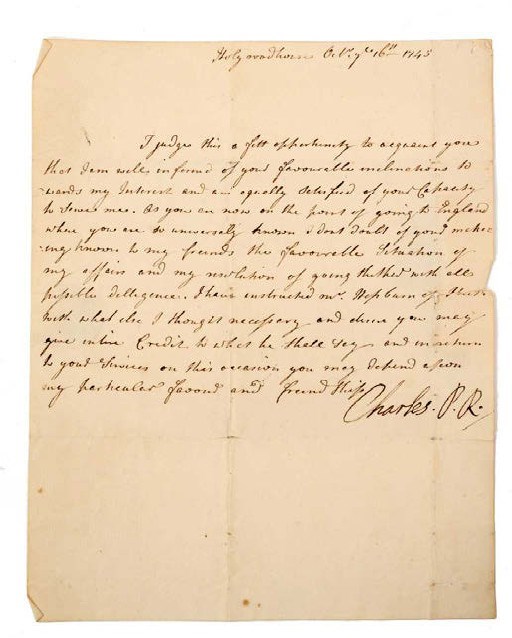 Holyroodhouse Octr. ye. 16th 1745
I judge this a fitt opportunity to acquaint you
that I am well informed of your favourable inclinations to
wards my Interest and am equally Satisfied of your Capacity
to Serve me. As you are now on the point of going to England
where you are so universaly known I dont doubt of your mak=
ing known to my friends the favourable Situation of
my affairs and my resolution of going thither with all
possible dilligence. I have instructed Mr. Hepburn of
with what else I thought necessary and desire you may
give intire Credit to what he shall Say and in return
to your Services on this occasion you may depend upon
my particular favour and freindship
Charles. P. R.